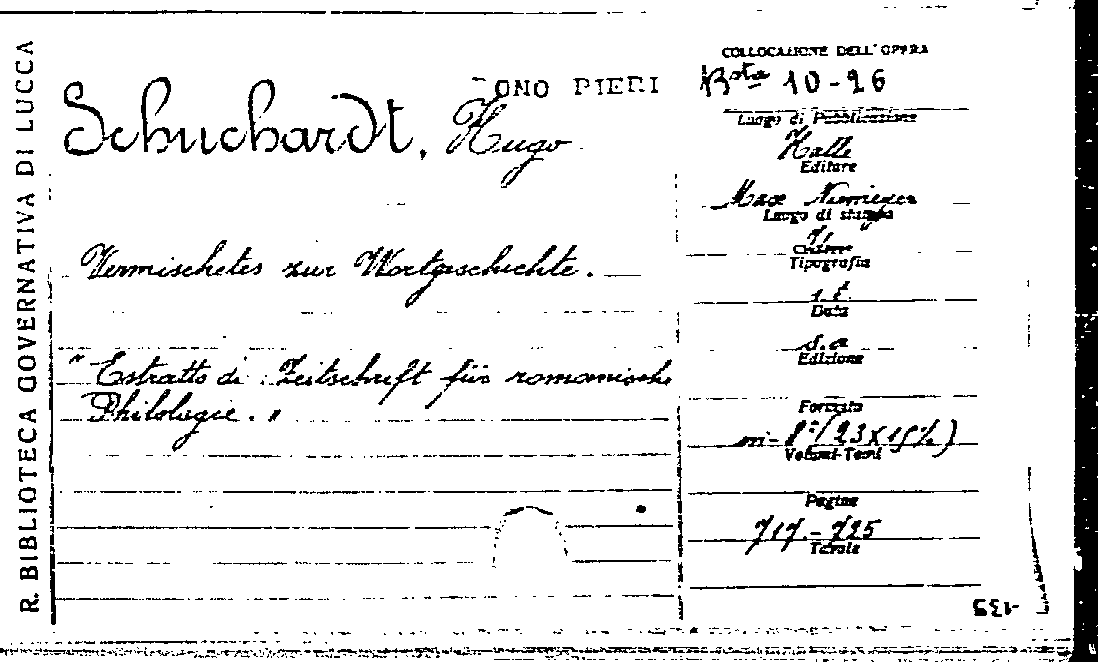 R. BIBLIOTECA GOVERNATIVA DI LUCCA
ONO PIERI
Schuchardt, Hugo
Vermischetes zur Wortgeschichte.
"Estratto di: Zeitschrift für romanische
Philologie."
COLLOCAZIONE DELL'OPERA
Bsta 10-26
Luogo di Pubblicazione
Halle
Editore
Max Niemeyer
Luogo di stampa
Tipografia
s.t.
Data
s.a
Edizione
Formato
in-8º(23x15½)
Volumi-Tomi
Pagine
717.-725
Tavole